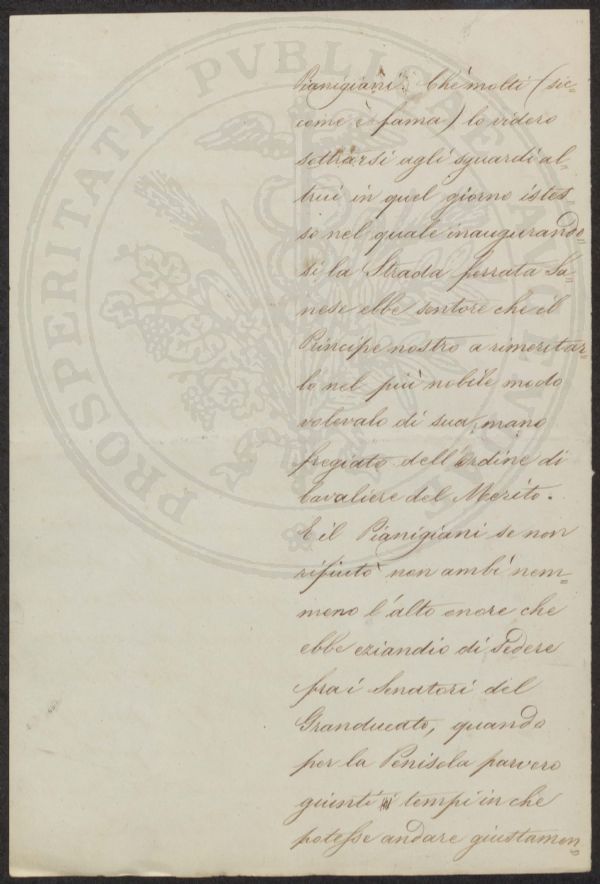 Pianigiani. Chè molti (sic=
come è fama) lo videro
sottrarsi agli sguardi al=
trui in quel giorno istes=
so nel quale inaugurando=
si la Strada ferrata Sa=
nese ebbe sentore che il
Principe nostro a rimeritar=
lo nel più nobile modo
volevalo di sua mano
fregiato dell'ordine di
Cavaliere del Merito.
E il Pianigiani se non
rifiutò non ambì nem=
meno l'alto onore che
ebbe eziandio di Sedere
fra i Senatori del
Granducato, quando
per la Penisola parvero
giunti i tempi in che
potesse andare giustamen=
PROSPERITATI PVBLICAE